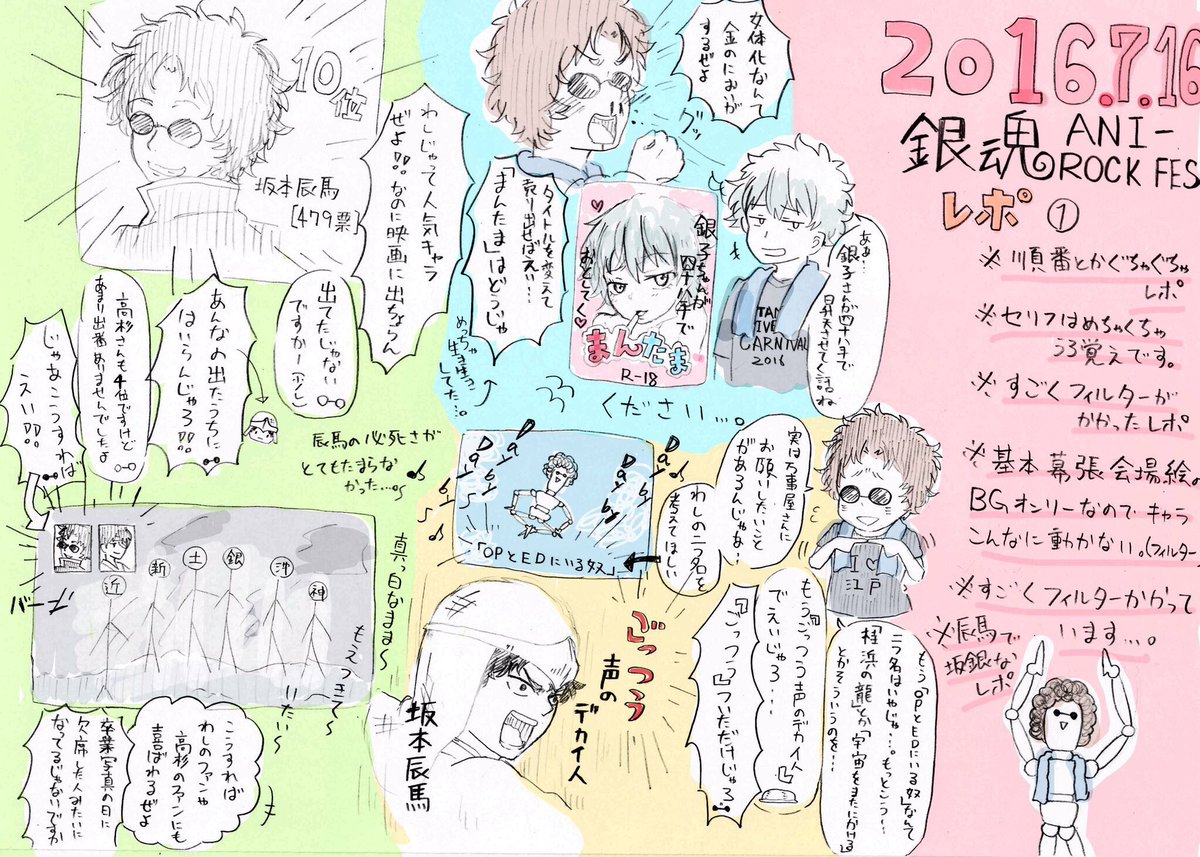 2016.7.16
銀魂 ANI-
ROCK FES
レポ ①
※順番とかぐちゃぐちゃ
レポ
※セリフはめちゃくちゃ
うろ覚えです。
※すごくフィルターが
かかったレポ
※基本幕張会場絵の
BGオンリーなので、キャラ
こんなに動かない。(フィルター)
※すごくフィルターかかって
います…。
※辰馬で
坂銀な
レポ
女体化なんて
金のにおいが
するぜよ
グッ
あぁ…
銀子さんが四十八手で
昇天させてく話ね
CARNIVAL
2016
銀子ちゃんが
四十八手で
おとしてく
まんたま
R-18
タイトルを変えて
売り出せばえい…
「まんたま」はどうじゃ
めっちゃ
生き生き
してた…。
ください…。
わしじゃって人気キャラ
ぜよ!!なのに映画に出ちょらん
10位
坂本辰馬
[479票]
出てたじゃない
ですかー
あんなの出たうちに
はいらんじゃろ!!
高杉さんも4位ですけど
あまり出番ありませんでしたよ
じゃあこうすれば
えい!!
辰馬の必死さが
とてもたまらな
かった…。
バーン
近
新
土
銀
沖
神
もえつきて〜
いたい〜
真っ白なまま〜
こうすれば
わしのファンや
高杉のファンにも
喜ばれるぜよ
卒業写真の日に
欠席した人みたいに
なってるじゃないですか
実は万事屋さんに
お願いしたいこと
があるんじゃね!
わしの二つ名を
考えてほしい
I♡
江戸
Da
by
Da
by
Da
by
Da
by
「OPとEDにいる奴」
もう「OPとEDにいる奴」なんて
二つ名はいやじゃ…。もっとこう…
「桂浜の龍」とか「宇宙をまたにかける」
とかそういうのを…
もう「ごっつう声のデカイ人」
でえいじゃろ…
「ごっつう」ついただけじゃろ…
ごっつう
声の
デカイ人
坂本辰馬